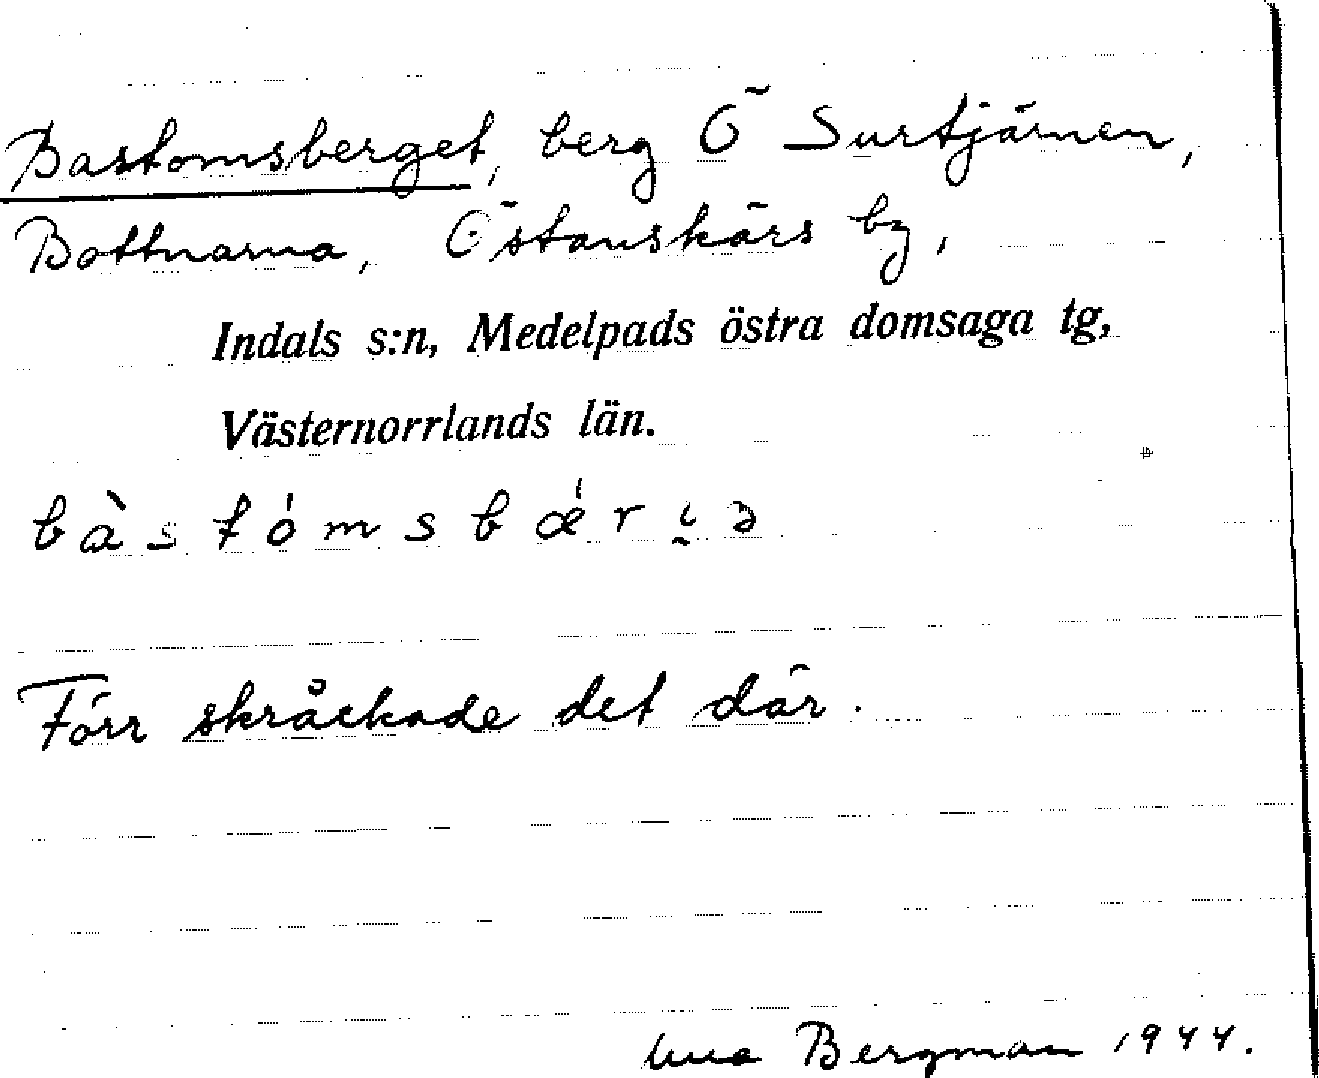 Bastomsberget, berg Ö Surtjärnen,
Bottnarna, Östanskärs by,
Indals s:n, Medelpads östra domsaga tg,
Västernorrlands län.
bàstómsbǽrı̰ə
Förr skråckade det där.
Bergman 1944.